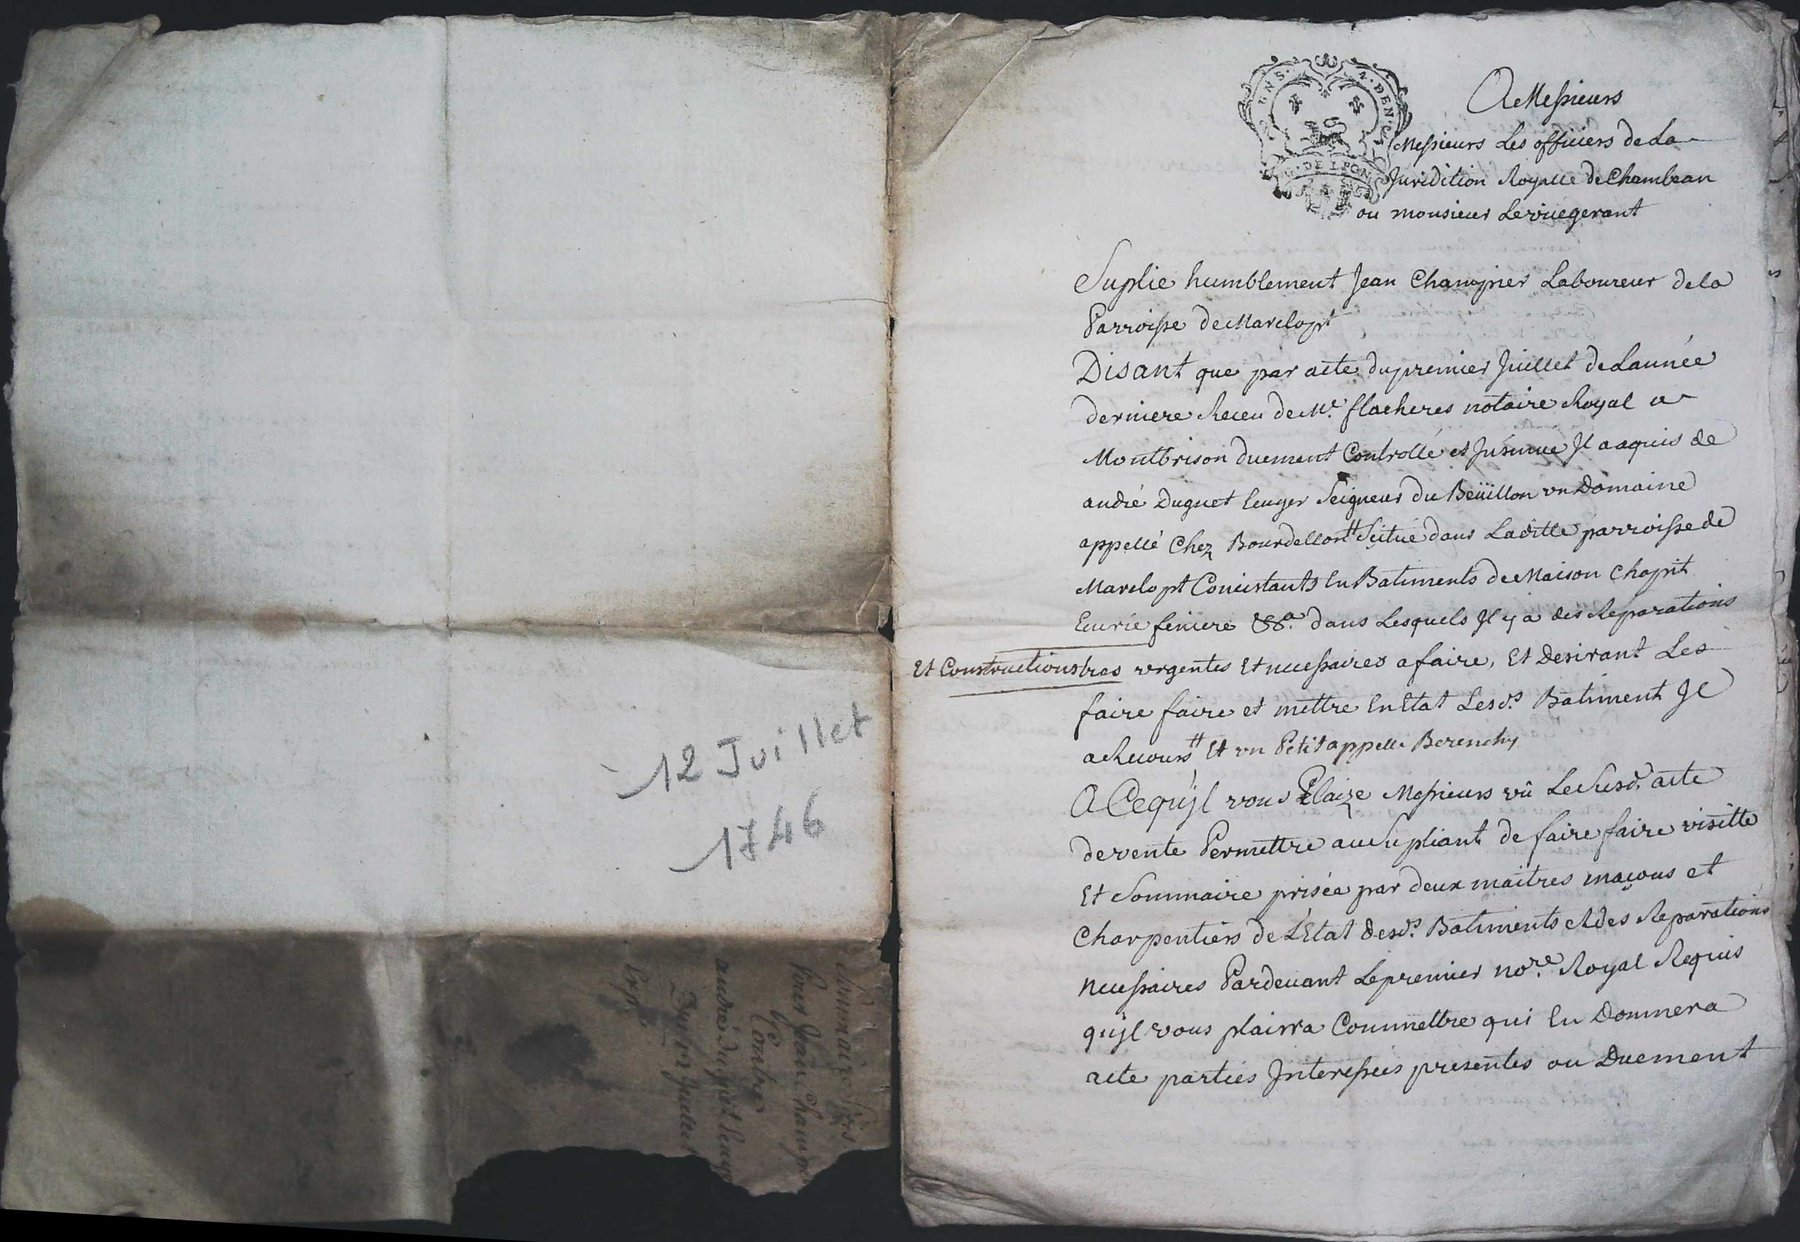 12 Juillet
1746
Sommaire
Pour Jean Champ
Contre
andre Duguet Ecuyer
Du 12 Juillet
4. DEN.
DE LYON
A Messieurs
Messieurs Les officiers de La
Juridition Royalle de Chambean
ou monsieur Le viuegerant
Suplie humblement Jean Champier Laboureur de la
Parroisse de Marclopt
Disant que par acte du premier Juillet de Lannée
derniere Receu de Me. flacheres notaire Royal a
Montbrison duement Controllé et Insinue Il a aquis de
andré Duguet Ecuyer Seigneur du Beüillon un Domaine
appellé Chez Bourdellon # Scitué dans Laditte parroisse de
Marclopt Concistants En Batiments de Maison Chapit
Ecurie feniere &&a. dans Lesquels Il y a des Reparations
Et Constructions tres urgentes Et necessaires a faire, Et Desirant Les
faire faire et mettre En Etat Lesds. Batiment Il
a Recours # Et un Petit appelle Berenchy
A Ce quil vous Plaize Messieurs vû Le Susd. acte
de vente Permettre au Supliant de faire faire visitte
Et Sommaire prisée par deux maitres maçons et
Charpentiers de L'Etat desds. Batiments et des Reparations
necessaires Pardevant Le premier nore. Royal Requis
quil vous plairra Commettre qui En Donnera
acte parties Interessées presentes ou Duement